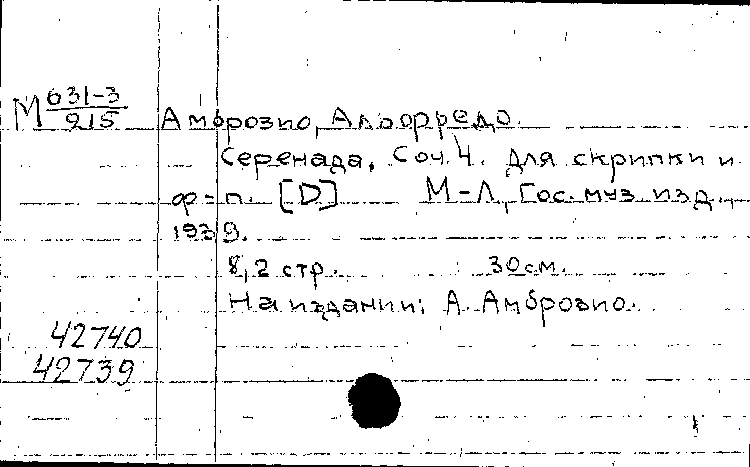 М 631-3
915
Амброзио, Альфредо.
Серенада, Соч. 4. Для скрипки и
ф=п. [D] М-Л, Гос. муз. изд.,
1939.
8, 2 стр. 30 см.
На издании: А. Амброзио.
42740
42739